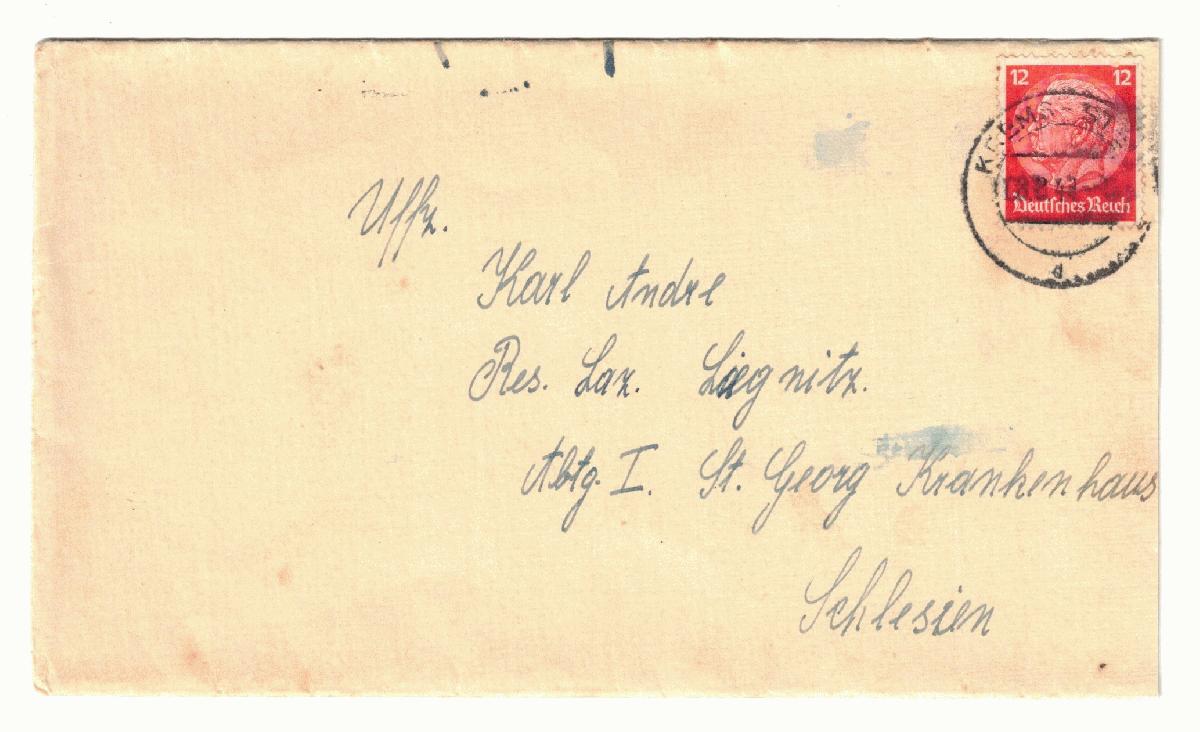 12 12
Deutsches Reich
d
Uffz.
Karl Andre
Res. Laz. Liegnitz.
Abtg. I. St. Georg Krankenhaus
Schlesien